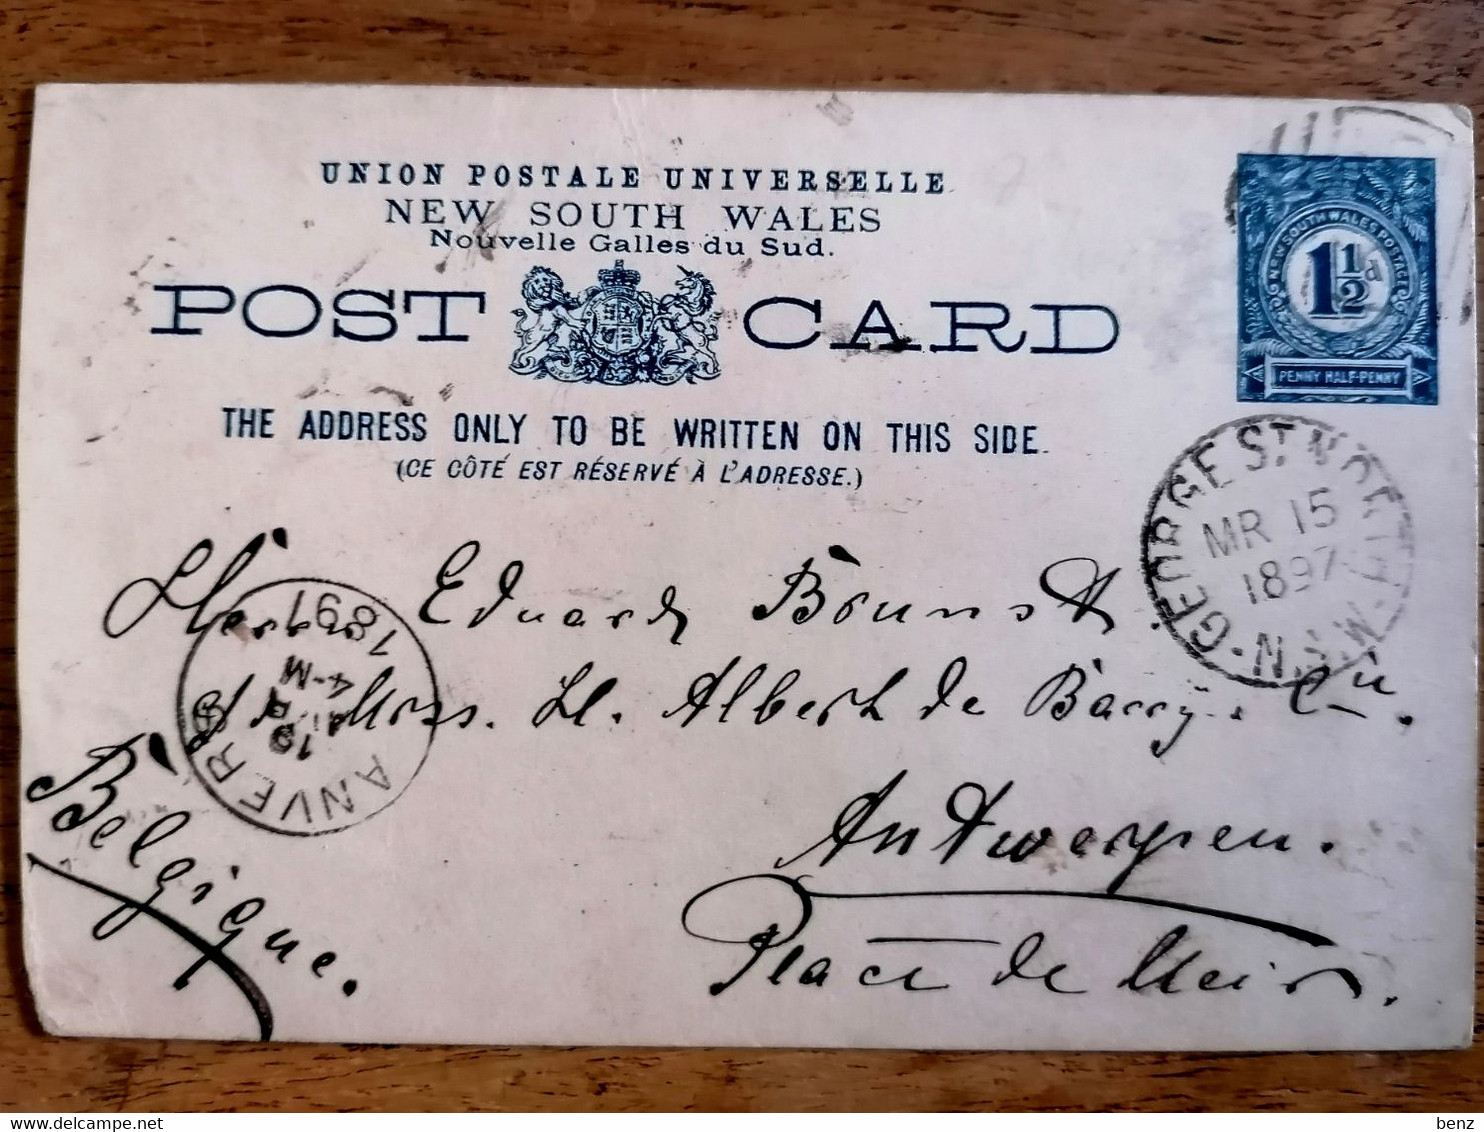 UNION POSTALE UNIVERSELLE
NEW SOUTH WALES
Nouvelle Galles du Sud.
POST CARD
NEW SOUTH WALES POSTAGE
1½d
PENNY HALF-PENNY
THE ADDRESS ONLY TO BE WRITTEN ON THIS SIDE.
(CE CÔTÉ EST RÉSERVÉ À L'ADRESSE.)
GEORGE ST. NORTH. N.S.W.
MR 15
1897
Herrn Eduard
Adr. Mrss. H. Albert de Barry & Cie.
ANVERS
1897
Antwerpen.
Place de Meir.
Belgique.
benz